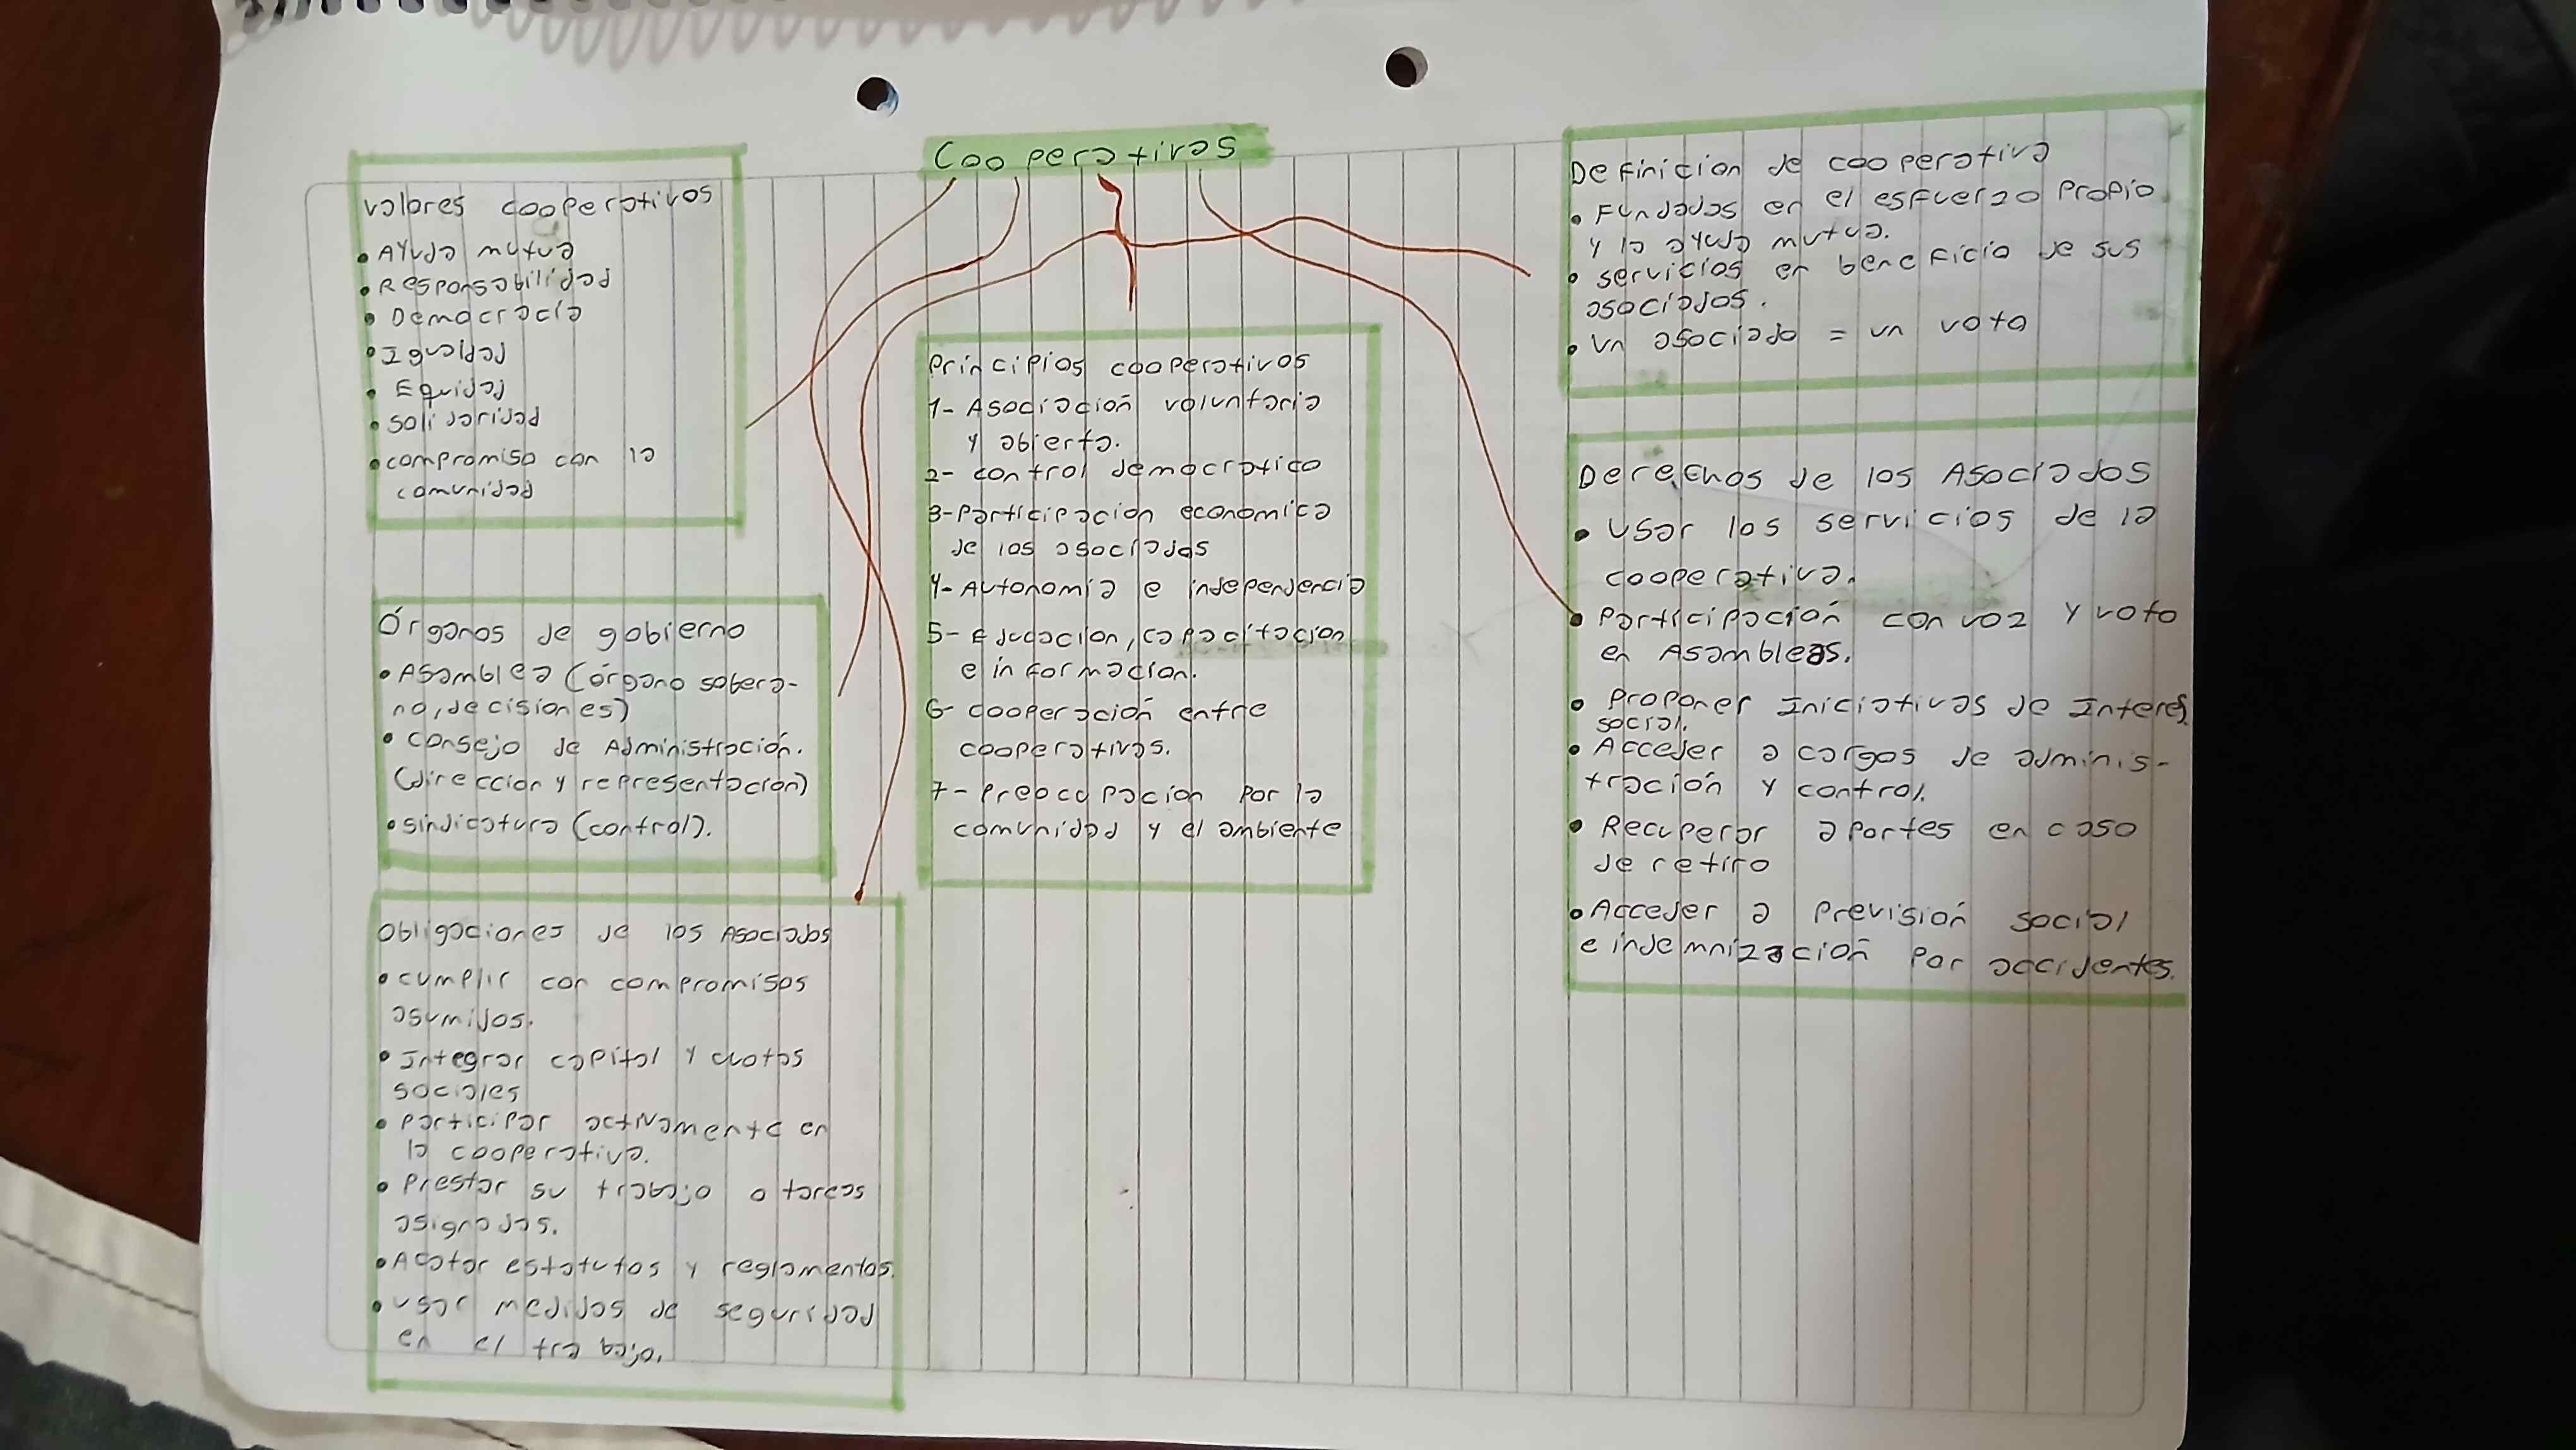 Cooperativas
valores cooperativos
• Ayuda mutua
• Responsabilidad
• Democracia
• Igualdad
• Equidad
• solidaridad
• compromiso con la
comunidad
Órganos de gobierno
• Asamblea (órgano sobera-
no, decisiones)
• consejo de Administración.
(direccion y representación)
• sindicatura (control).
Obligaciones de los Asociados
• cumplir con compromisos
asumidos.
• Integrar capital y cuotas
sociales
• participar activamente en
la cooperativa.
• Prestar su trabajo o tareas
asignadas.
• Acatar estatutos y reglamentos.
• usar medidas de seguridad
en el trabajo.
Principios cooperativos
1- Asociación voluntaria
y abierta.
2- control democratico
3- Participacion economica
de los asociados
4- Autonomía e independencia
5- Educacion, capacitacion
e informacion.
6- cooperación entre
cooperativas.
7- Preocupacion por la
comunidad y el ambiente
Definicion de cooperativa
• Fundadas en el esfuerzo propio
y la ayuda mutua.
• servicios en beneficio de sus
asociados.
• un asociado = un voto
Derechos de los Asociados
• usar los servicios de la
cooperativa.
• Participación con voz y voto
en Asambleas.
• Proponer Iniciativas de Interes
social.
• Acceder a cargos de adminis-
tración y control.
• Recuperar aportes en caso
de retiro
• Acceder a Previsión social
e indemnización por accidentes.